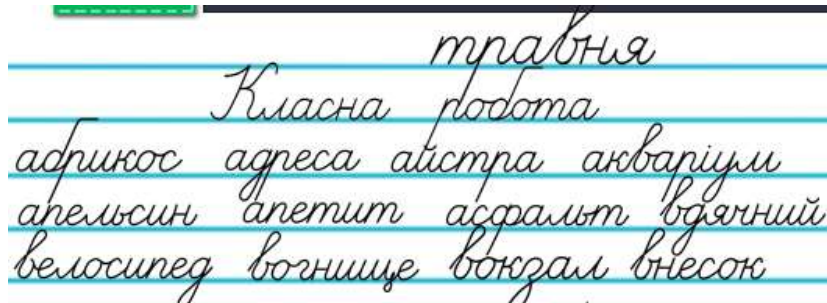 травня
Класна робота
абрикос адреса айстра акваріум
апельсин апетит асфальт вдячний
велосипед вогнище вокзал внесок